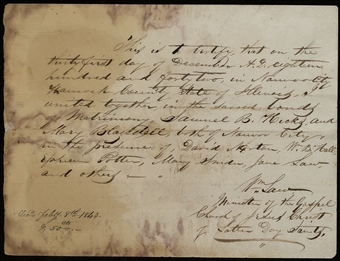 This is to certify, that on the
thirtyfirst day of December A.D. eighteen
hundred and fortytwo, in Nauvoo City
Hancock County, State of Illinois, I
united together in the sacred bonds
of Matrimony, Samuel B. Hicks and
Mary Blaisdell both of Nauvoo City,
in the presence of, David Morton, Wm
Potter, Mary Jane Law
and others
Wm Law
Minister of the Gospel
Church of Jesus Christ
of Latter Day Saints,
Feby 8th 1843.